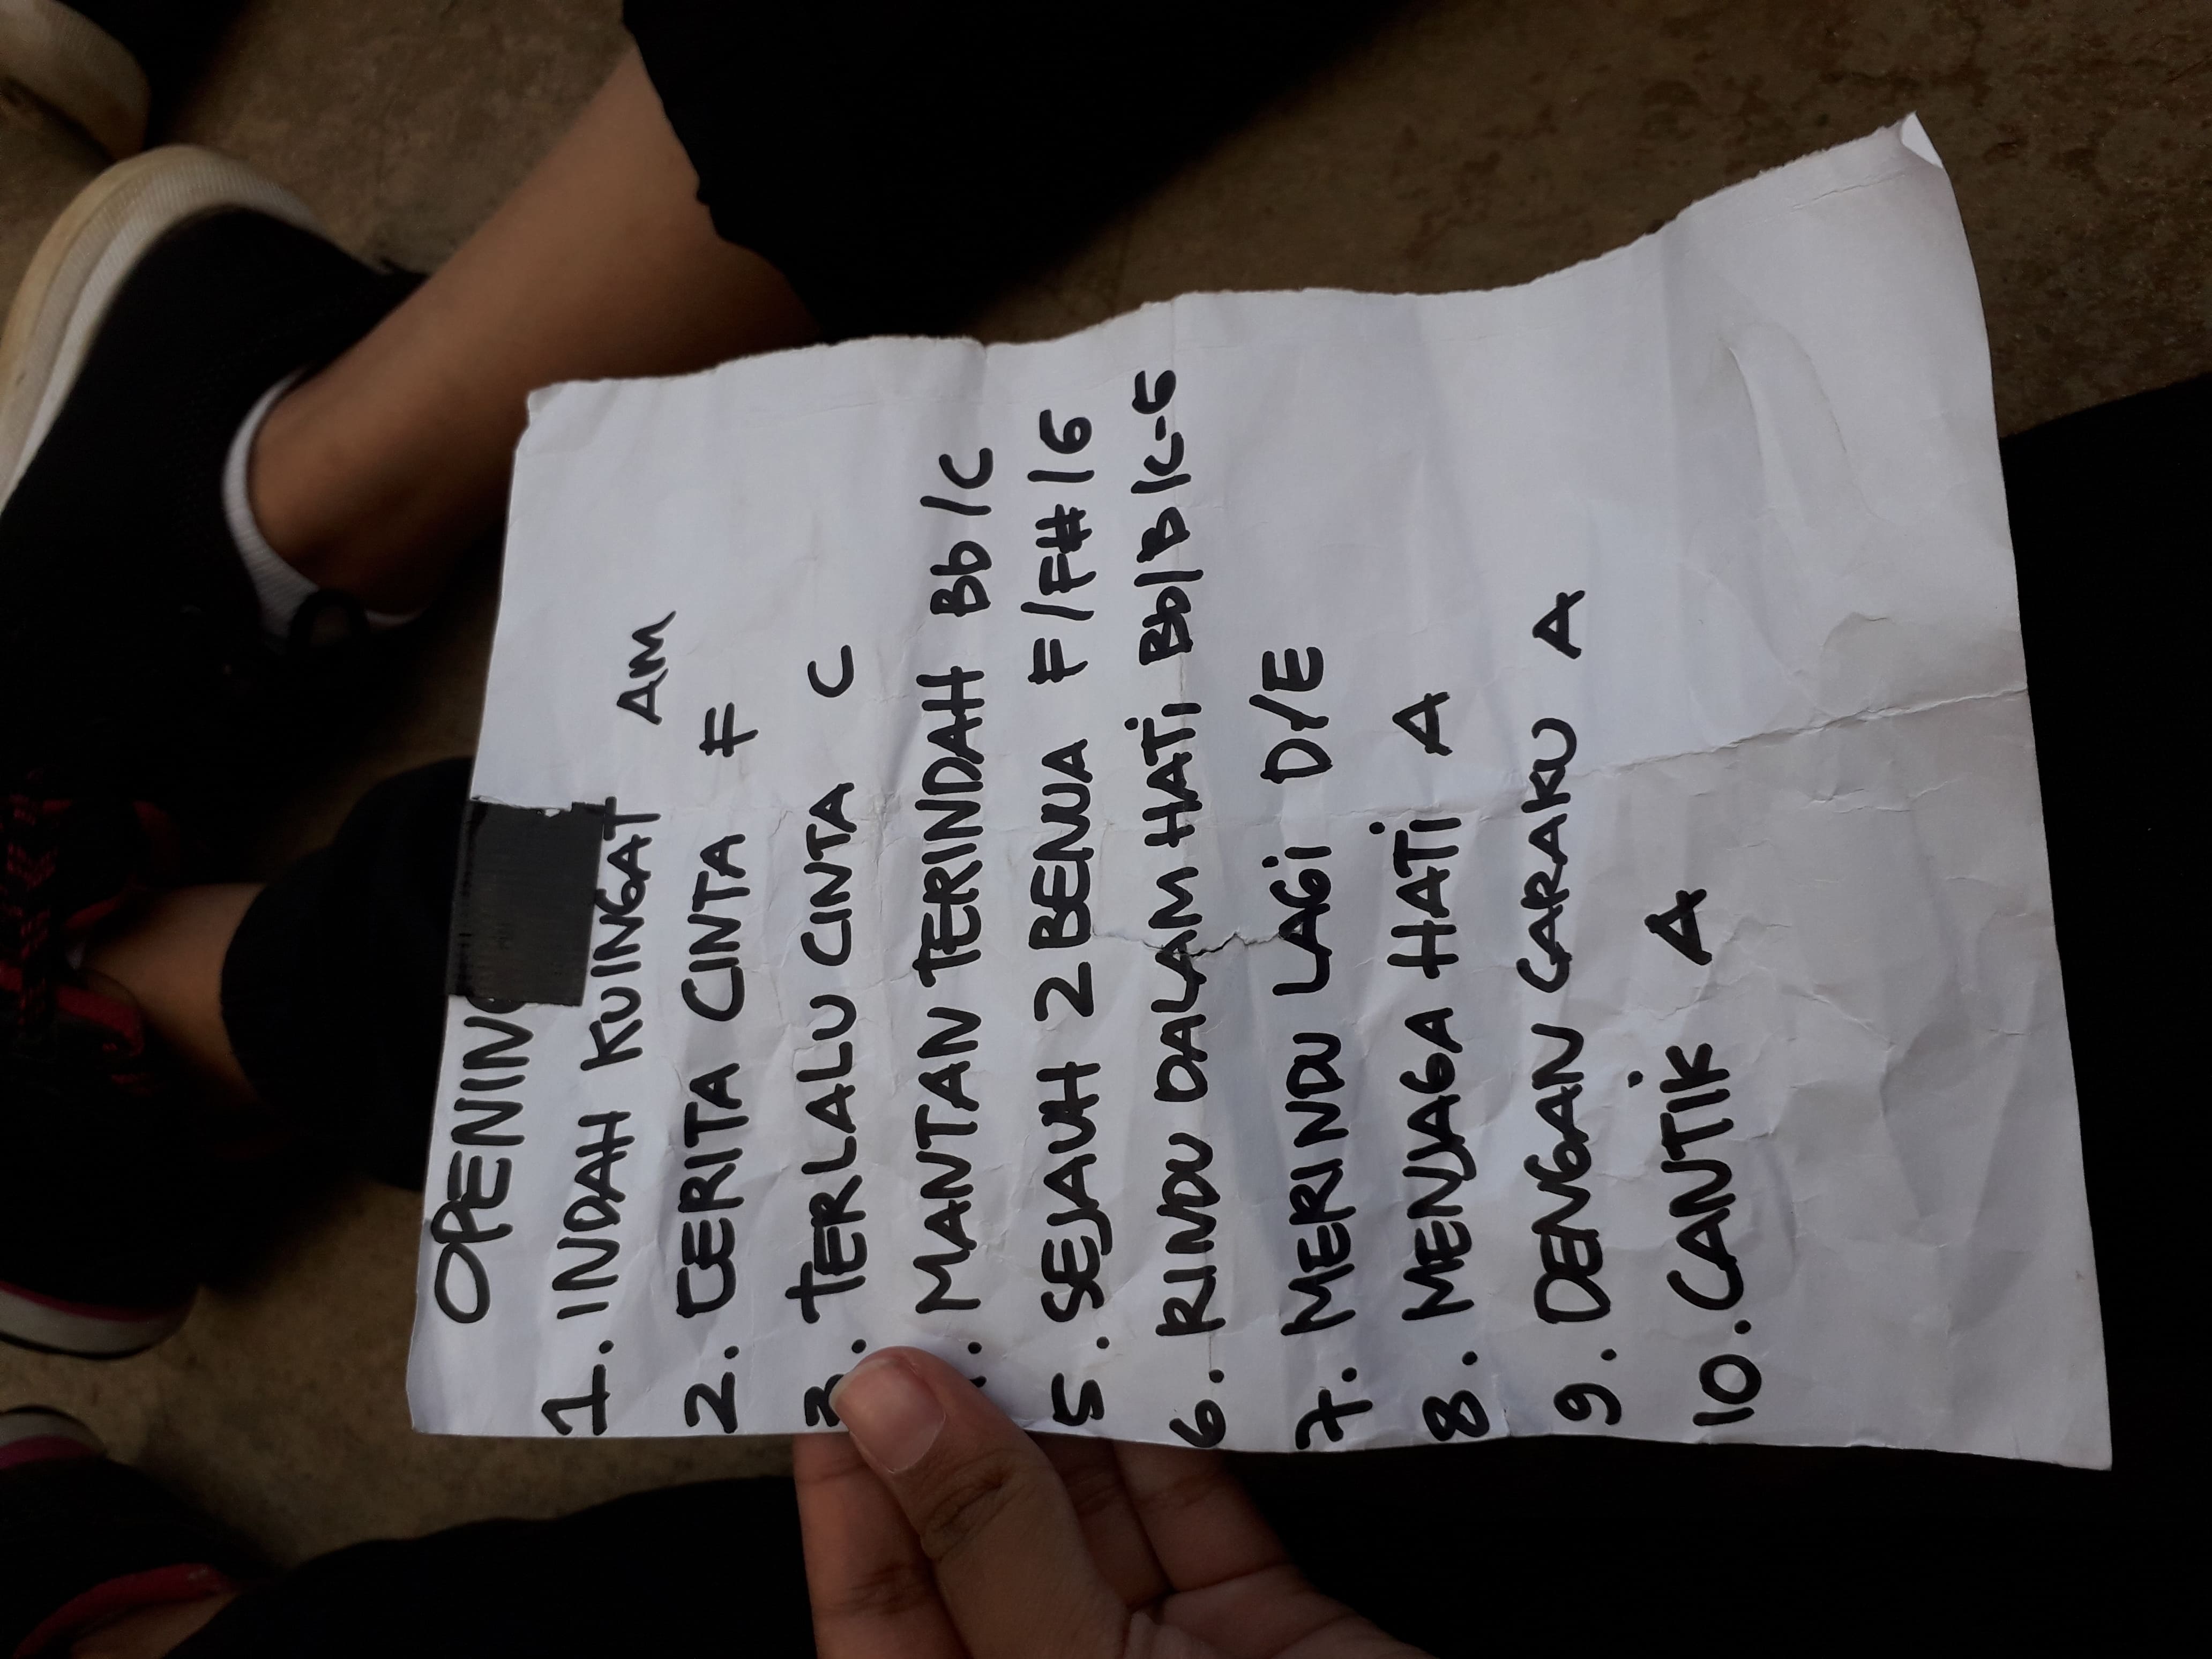 OPENING
1. INDAH KUINGAT AM
2. CERITA CINTA F
3. TERLALU CINTA C
. MANTAN TERINDAH Bb/C
5. SEJAUH 2 BENUA F/F#/G
6. RINDU DALAM HATi Bb/B/C-G
7. MERINDU LAGi D/E
8. MENJAGA HATi A
9. DENGAN CARAKU A
10. CANTiK A